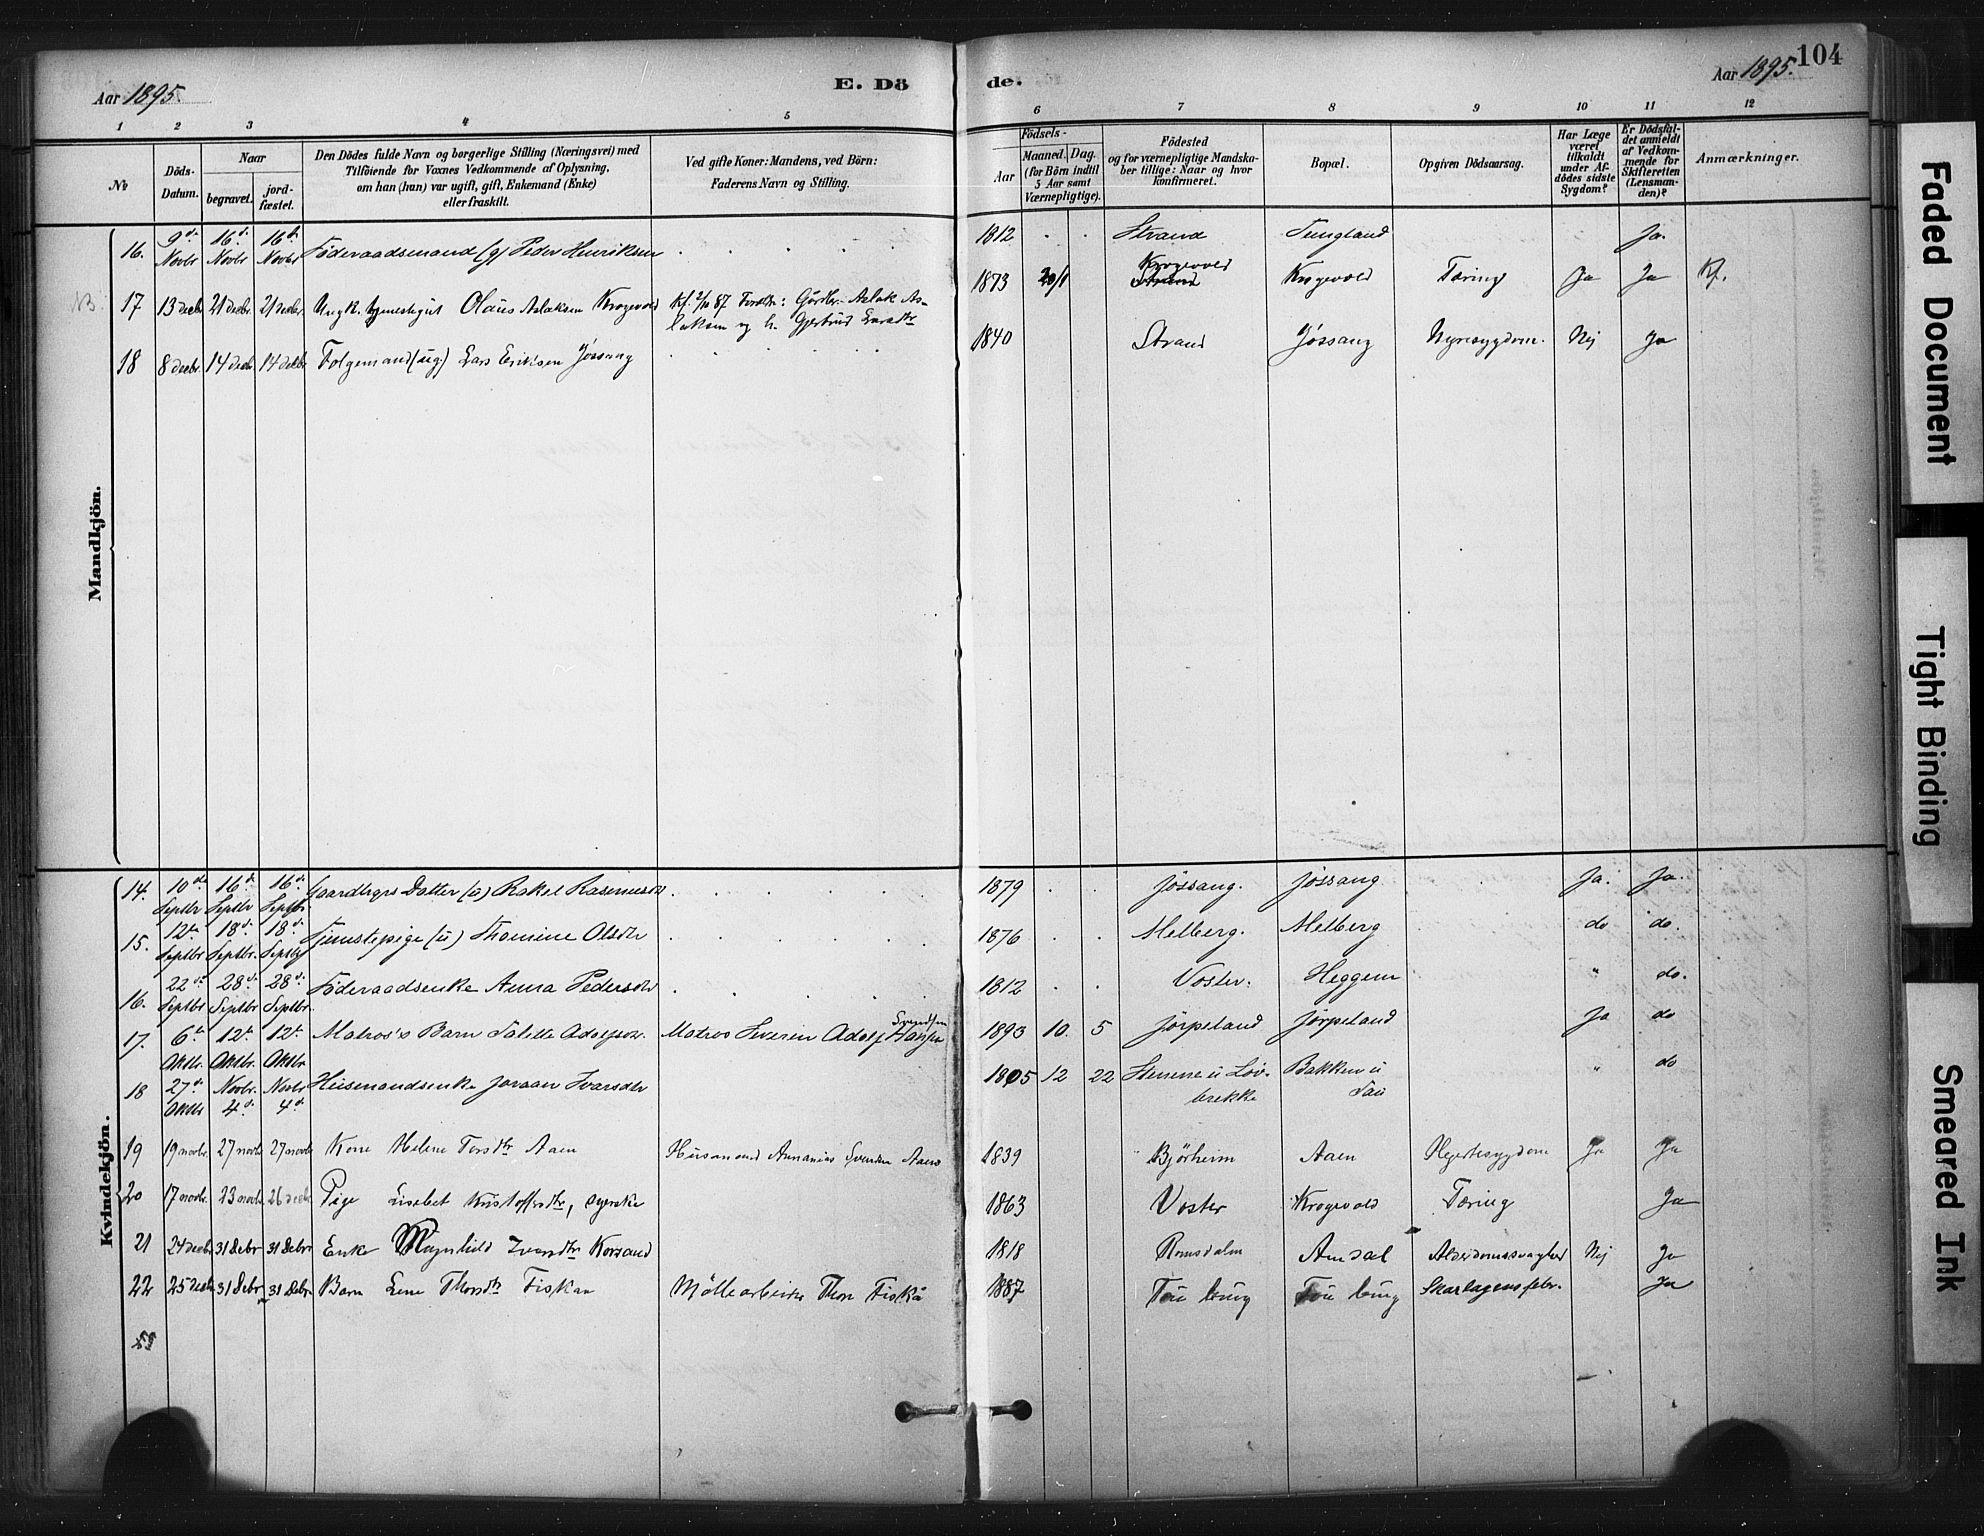 Aar 1895.
E. Dö
de.
Aar 1895.
104
1 2 3 4 5
6 7 8 9 10 11 12
No
Döds-
Datum.
Naar
begravet.
jord-
fæstet.
Den Dödes fulde Navn og borgerlige Stilling (Næringsvei) med
Tilföiende for Voxnes Vedkommende af Oplysning,
om han (hun) var ugift, gift, Enkemand (Enke)
eller fraskilt.
Ved gifte Koner: Mandens, ved Börn:
Faderens Navn og Stilling.
Födsels-
Aar
Maaned. Dag.
(for Börn indtil
5 Aar samt
Værnepligtige).
Födested
og for værnepligtige Mandska-
ber tillige: Naar og hvor
konfirmeret.
Bopæl.
Opgiven Dödsaarsag.
Har Læge
været
tilkaldt
under Af-
dödes sidste
Sygdom?
Er Dödsfal-
det anmeldt
af Vedkom-
mende for
Skifteretten
(Lensman-
den)?
Anmærkninger.
Mandkjön.
16. 9d. Novbr 16d. Novbr 16d. Novbr Föderaadsmand (g) Peder Henriksen 1812 Strand Tungland Ja.
Krogevold
NB. 17 13 decbr 21 decbr 21 decbr Ungk. tjenestegut Olaus Aslaksen Krogevold Kf. 2/10 87 Forældr: Gårdbr. Aslak As-
laksen og h. Gjertrud Larsdtr
1873 20/1 Strand Krogevold Tæring Ja Ja Kf.
18 8 decbr. 14 decbr. 14 decbr Folgemand (ug.) Lars Eriksen Jössang 1840 Strand Jössang Nyresygdom. Nej Ja
Kvindekjön.
14. 10de Septbr 16d. Septbr 16d. Septbr Gaardbrgrs Datter (a) Rakel Rasmusdr 1879 Jössang. Jössang Ja. Ja.
15. 12te Septbr 18d. Septbr. 18d. Septbr Tjenestepige (u) Thomine Olsdtr 1876 Melberg. Melberg do do.
16. 22d. Septbr 28d. Septbr 28d. Septbr. Föderaadsenke Anna Pedersdr 1812 Voster. Heggem " do.
17. 6t Oktbr. 12t Oktbr. 12t Oktbr Matros's Barn Talette Adolfsdr. Matros Severin Adolf Svendsen 1893 10. 5 Jörpeland Jörpeland Ja do
18 27d Oktbr Novbr. 4d. Novbr 4d. Husmandsenke Joraan Ivarsdtr 1805 12 22 Stenene u Löv-
brekke Bakken u
Tau " do
19 19 novbr. 27 novbr 27 novbr Kone Helene Torsdtr Aaen Husmand Annanias Svendsen Aaen 1839 Björheim Aaen Hjertesygdom Ja Ja
20 17 novbr. 23 novbr 26 decbr Pige Liesbet Kristoffersdtr, syerske 1863 Voster Krogevold Tæring Ja
21 24 decbr 31 Decbr 31 Decbr Enke Magnhild Ivarsdtr Korsand 1818 Romsdalen Amdal Alderdomssvaghed Nej Ja
22 25 decbr 31 Decbr 31 Decbr. Barn Lene Thorsdtr Fiskaa Möllearbeider Thore Fiskå 1887 Tou brug Tou brug Skarlagensfeber. Ja
Faded Document
Tight Binding
Smeared Ink